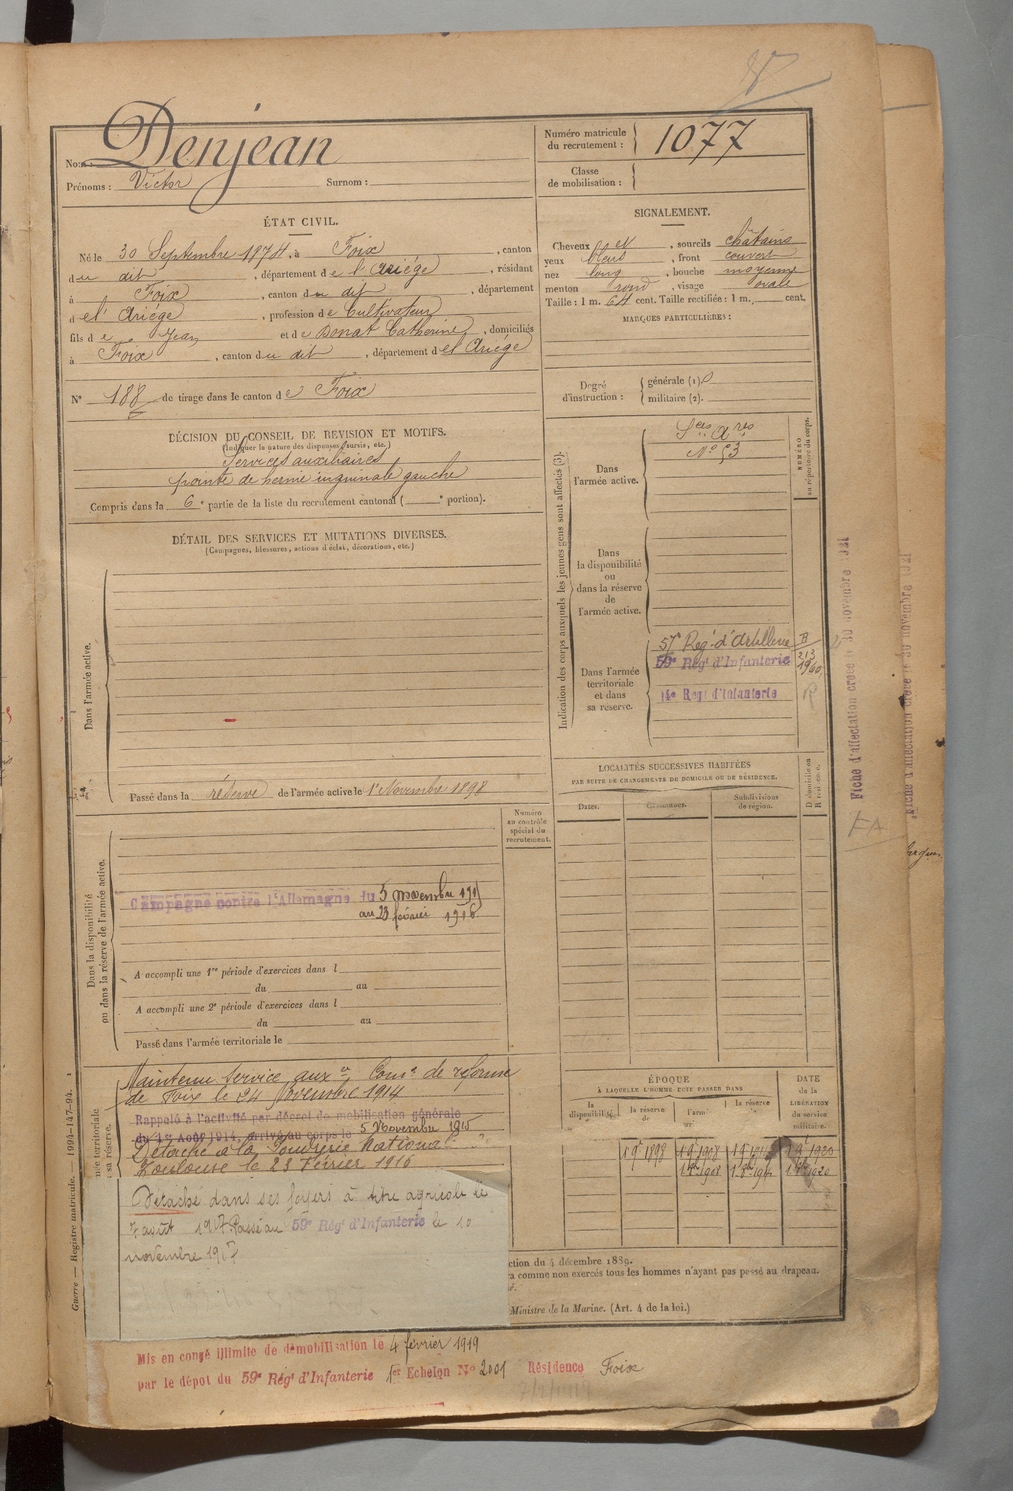 Nom : Denjean
Prénoms : Victor Surnom :
Numéro matricule du recrutement : 1077
Classe de mobilisation :
ÉTAT CIVIL.
Né le 30 Septembre 1874, à Foix, canton
du dit, département de l'Ariége, résidant
à Foix, canton du dit, département
de l'Ariége, profession de Cultivateur
fils de Jean et de Donat Catherine, domiciliés
à Foix, canton du dit, département de l'Ariége
N° 188 de tirage dans le canton de Foix
DÉCISION DU CONSEIL DE REVISION ET MOTIFS.
(Indiquer la nature des dispenses, sursis, etc.)
Services auxiliaires
pointe de hernie inguinale gauche
Compris dans la 6e partie de la liste du recrutement cantonal ( e portion).
SIGNALEMENT.
Cheveux et, sourcils châtains
yeux bleus, front couvert
nez long, bouche moyenne
menton rond, visage ovale
Taille : 1 m. 64 cent. Taille rectifiée : 1 m. cent.
MARQUES PARTICULIÈRES :
Degré d'instruction : générale (1).
militaire (2).
DÉTAIL DES SERVICES ET MUTATIONS DIVERSES.
(Campagnes, blessures, actions d'éclat, décorations, etc.)
Dans l'armée active.
Passé dans la réserve de l'armée active le 1er Novembre 1898
Indication des corps auxquels les jeunes gens sont affectés (3).
NUMÉRO au répertoire du corps.
Dans l'armée active.
Sces Ares
N° 53
Dans la disponibilité ou dans la réserve de l'armée active.
Dans l'armée territoriale et dans sa réserve.
57e Regt d'Artillerie
59e Régt d'Infanterie
14e Régt d'Infanterie
LOCALITÉS SUCCESSIVES HABITÉES
PAR SUITE DE CHANGEMENTS DE DOMICILE OU DE RÉSIDENCE.
Dates. Communes. Subdivisions de région. D domicile ou R résidence.
Numéro au contrôle spécial du recrutement.
Dans la disponibilité ou dans la réserve de l'armée active.
Campagne contre l'Allemagne du 5 novembre 1915
au 23 février 1916
A accompli une 1re période d'exercices dans l
du au
A accompli une 2e période d'exercices dans l
du au
Passé dans l'armée territoriale le
Maintenu Service auxre Comon de réforme
de Foix le 24 Novembre 1914
Rappelé à l'activité par décret de mobilisation générale
du 1er Août 1914, arrivé au corps le 5 Novembre 1915
Détaché à la Poudrerie Nationale
Toulouse le 23 Février 1916
Détaché dans ses foyers à titre agricole le
7 août 1917 Passé au 59e Régt d'Infanterie le 10
novembre 1917
ÉPOQUE
À LAQUELLE L'HOMME DOIT PASSER DANS
DATE DE LA LIBÉRATION du service militaire.
la disponibilité. la réserve de l'armée la réserve de
ction du 4 décembre 1889.
ra comme non exercés tous les hommes n'ayant pas passé au drapeau.
Ministre de la Marine. (Art. 4 de la loi.)
Mis en congé illimité de démobilisation le 4 février 1919
par le dépot du 59e Régt d'Infanterie 1er Echelon N° 2001 Résidence Foix
Guerre — Registre matricule. — 1994-147-94.
Fiche d'affectation créée le 30 novembre 1921
FA